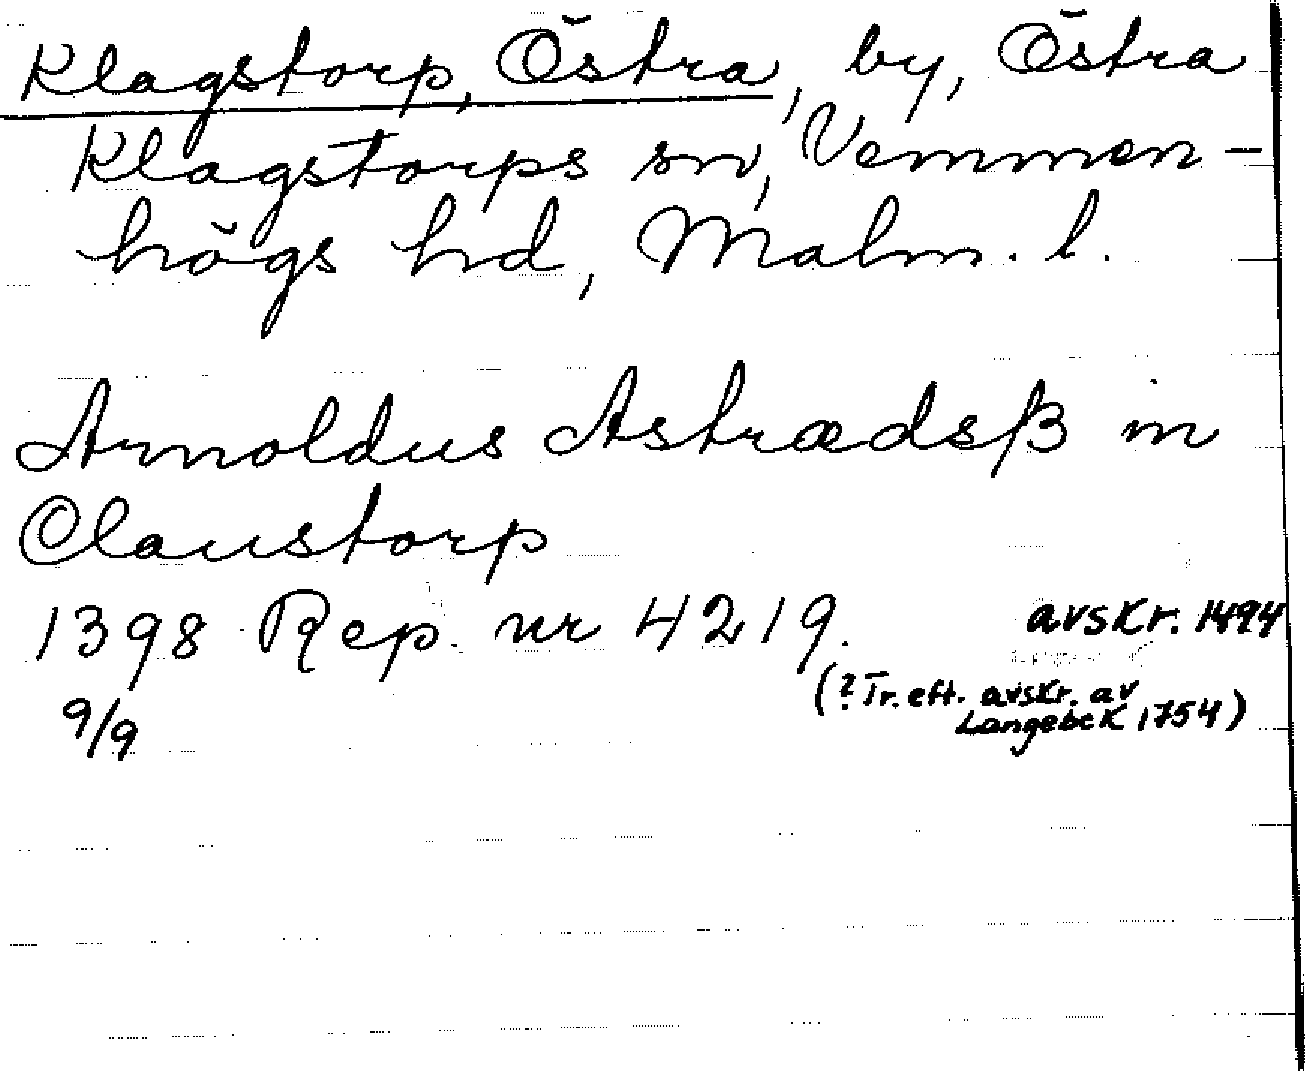 Klagstorp, Östra, by, Östra
Klagstorps sn, Vemmen-
högs hd, Malm. l.
Arnoldus Astrædsß in
Claustorp
1398 Rep. nr 4219. avskr. 1494
9/9 (? Tr. eft. avskr. av
Langebek 1754)